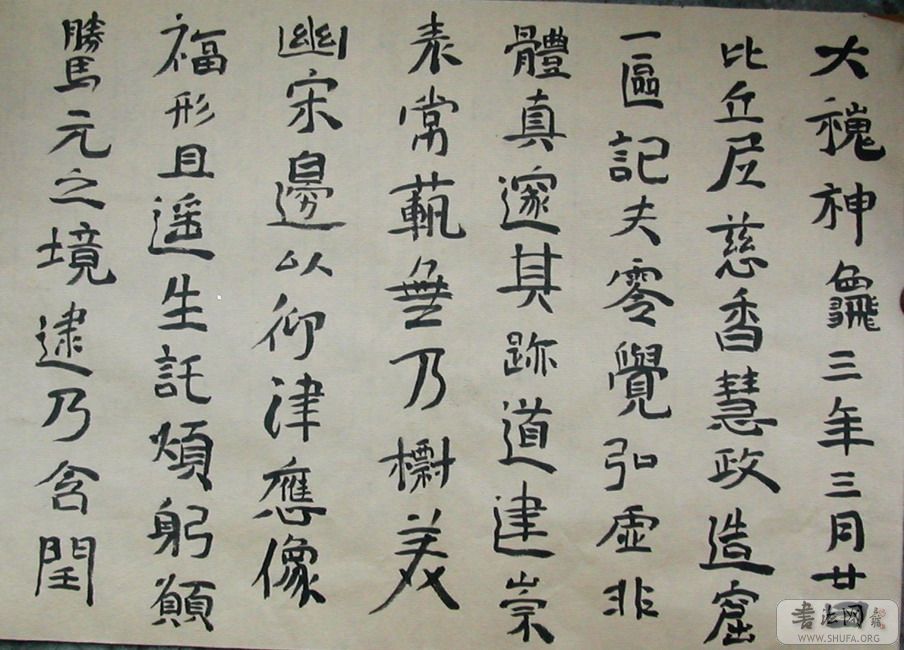 大魏神龜三年三月廿
比丘尼慈香慧政造窟
一區記夫零覺弘虛非
體真邃其跡道建崇
表常範無乃標美
幽宗邊以仰津應像
福形且遥生託煩躬願
騰元之境逮乃含閏
书法网
WWW.SHUFA.ORG